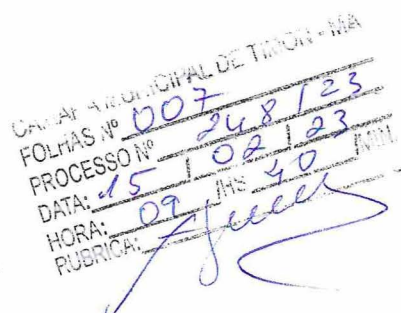 CÂMARA MUNICIPAL DE TIMON - MA
FOLHAS Nº 007
PROCESSO Nº 248 / 23
DATA: 15 / 02 / 23
HORA: 09 /HS 40 /MIN.
RUBRICA: